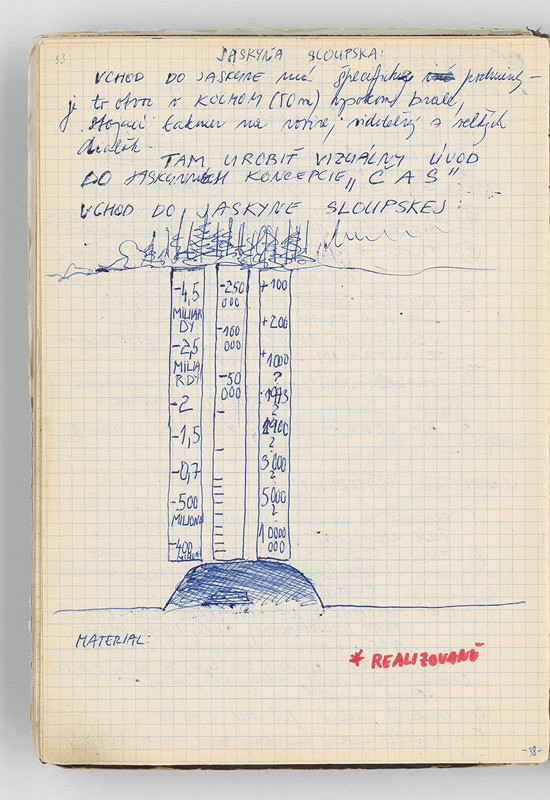 53
JASKYŇA SLOUPSKA:
VCHOD DO JASKYNE má špecifické podmienky –
je to otvor v KOLMOM (50m)
stojaci takmer na rovine, viditeľný z veľkých
diaľok. –
TAM, UROBIŤ VIZUÁLNY ÚVOD
DO JASKYNNEH KONCEPCIE „ČAS"
VCHOD DO JASKYNE SLOUPSKEJ:
-4,5
MILIAR
DY
-2,5
MILIA
RDY
-2
-1,5
-0,7
-500
MILIONO
-400
-250
000
-100
000
-50
000
+100
+200
+1000
?
1973
?
1900
?
3000
?
5000
?
10000
000
MATERIAL:
* REALIZOVANÉ
-38-